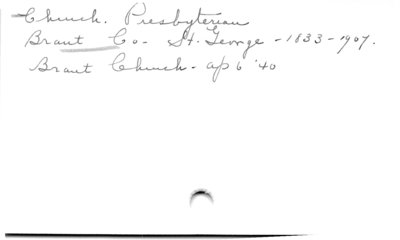 Church. Presbyterian
Brant Co - St. George - 1833 - 1907.
Brant Church - ap 6 '40